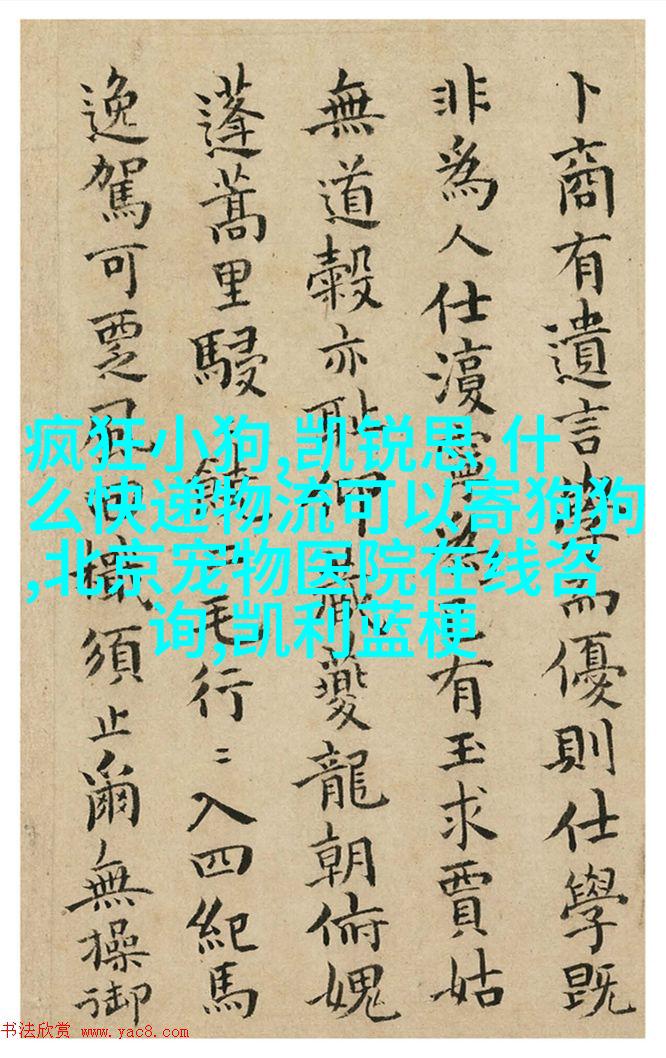 卜商有遺言學而優則仕學既
非為人仕須寧為己有玉求賈姑
無道穀亦恥仰夔龍朝俯媿
蓬蒿里駸毛行〻入四紀馬
逸駕可覂風檣須止爾無操御
疯狂小狗,凯锐思,什
么快递物流可以寄狗狗
,北京宠物医院在线咨
询,凯利蓝梗
书法欣赏 www.yac8.com